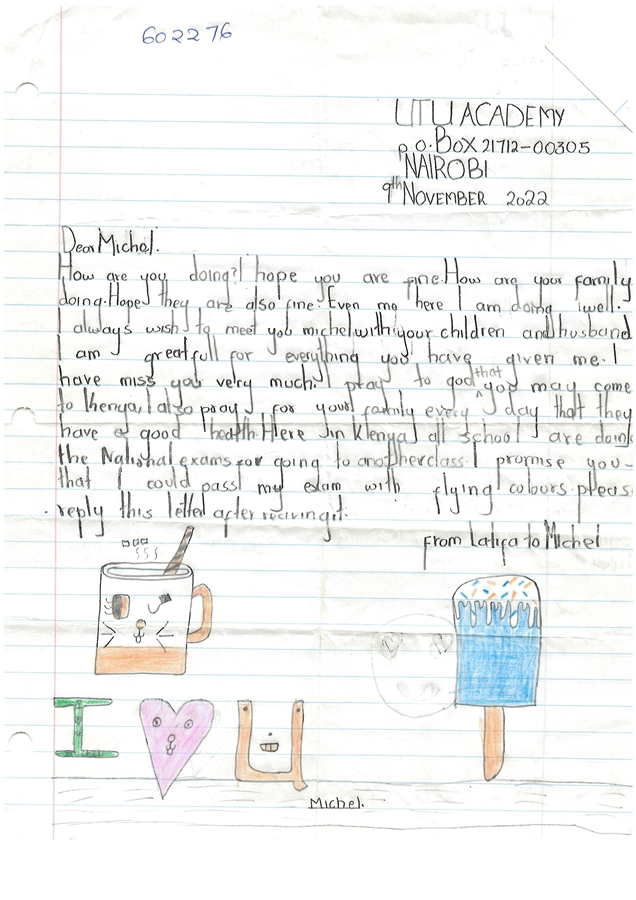 602276
UTU ACADEMY
P.O.BOX 21712-00305
NAIROBI
9th NOVEMBER 2022
Dear Michel.
How are you doing? I hope you are fine. How are your family
doing. Hope they are also fine. Even me here I am doing well.
I always wish to meet you michel with your children and husband
I am greatfull for everything you have given me. I
have miss you very much. I pray to god that you may come
to Kenya. I also pray for your family every day that they
have a good health. Here in Kenya all school are doing
the National exams for going to another class. I promise you
that I could pass my exam with flying colours. pleas
reply this letter after reciving it.
from Latifa to Michel
I U
Michel.